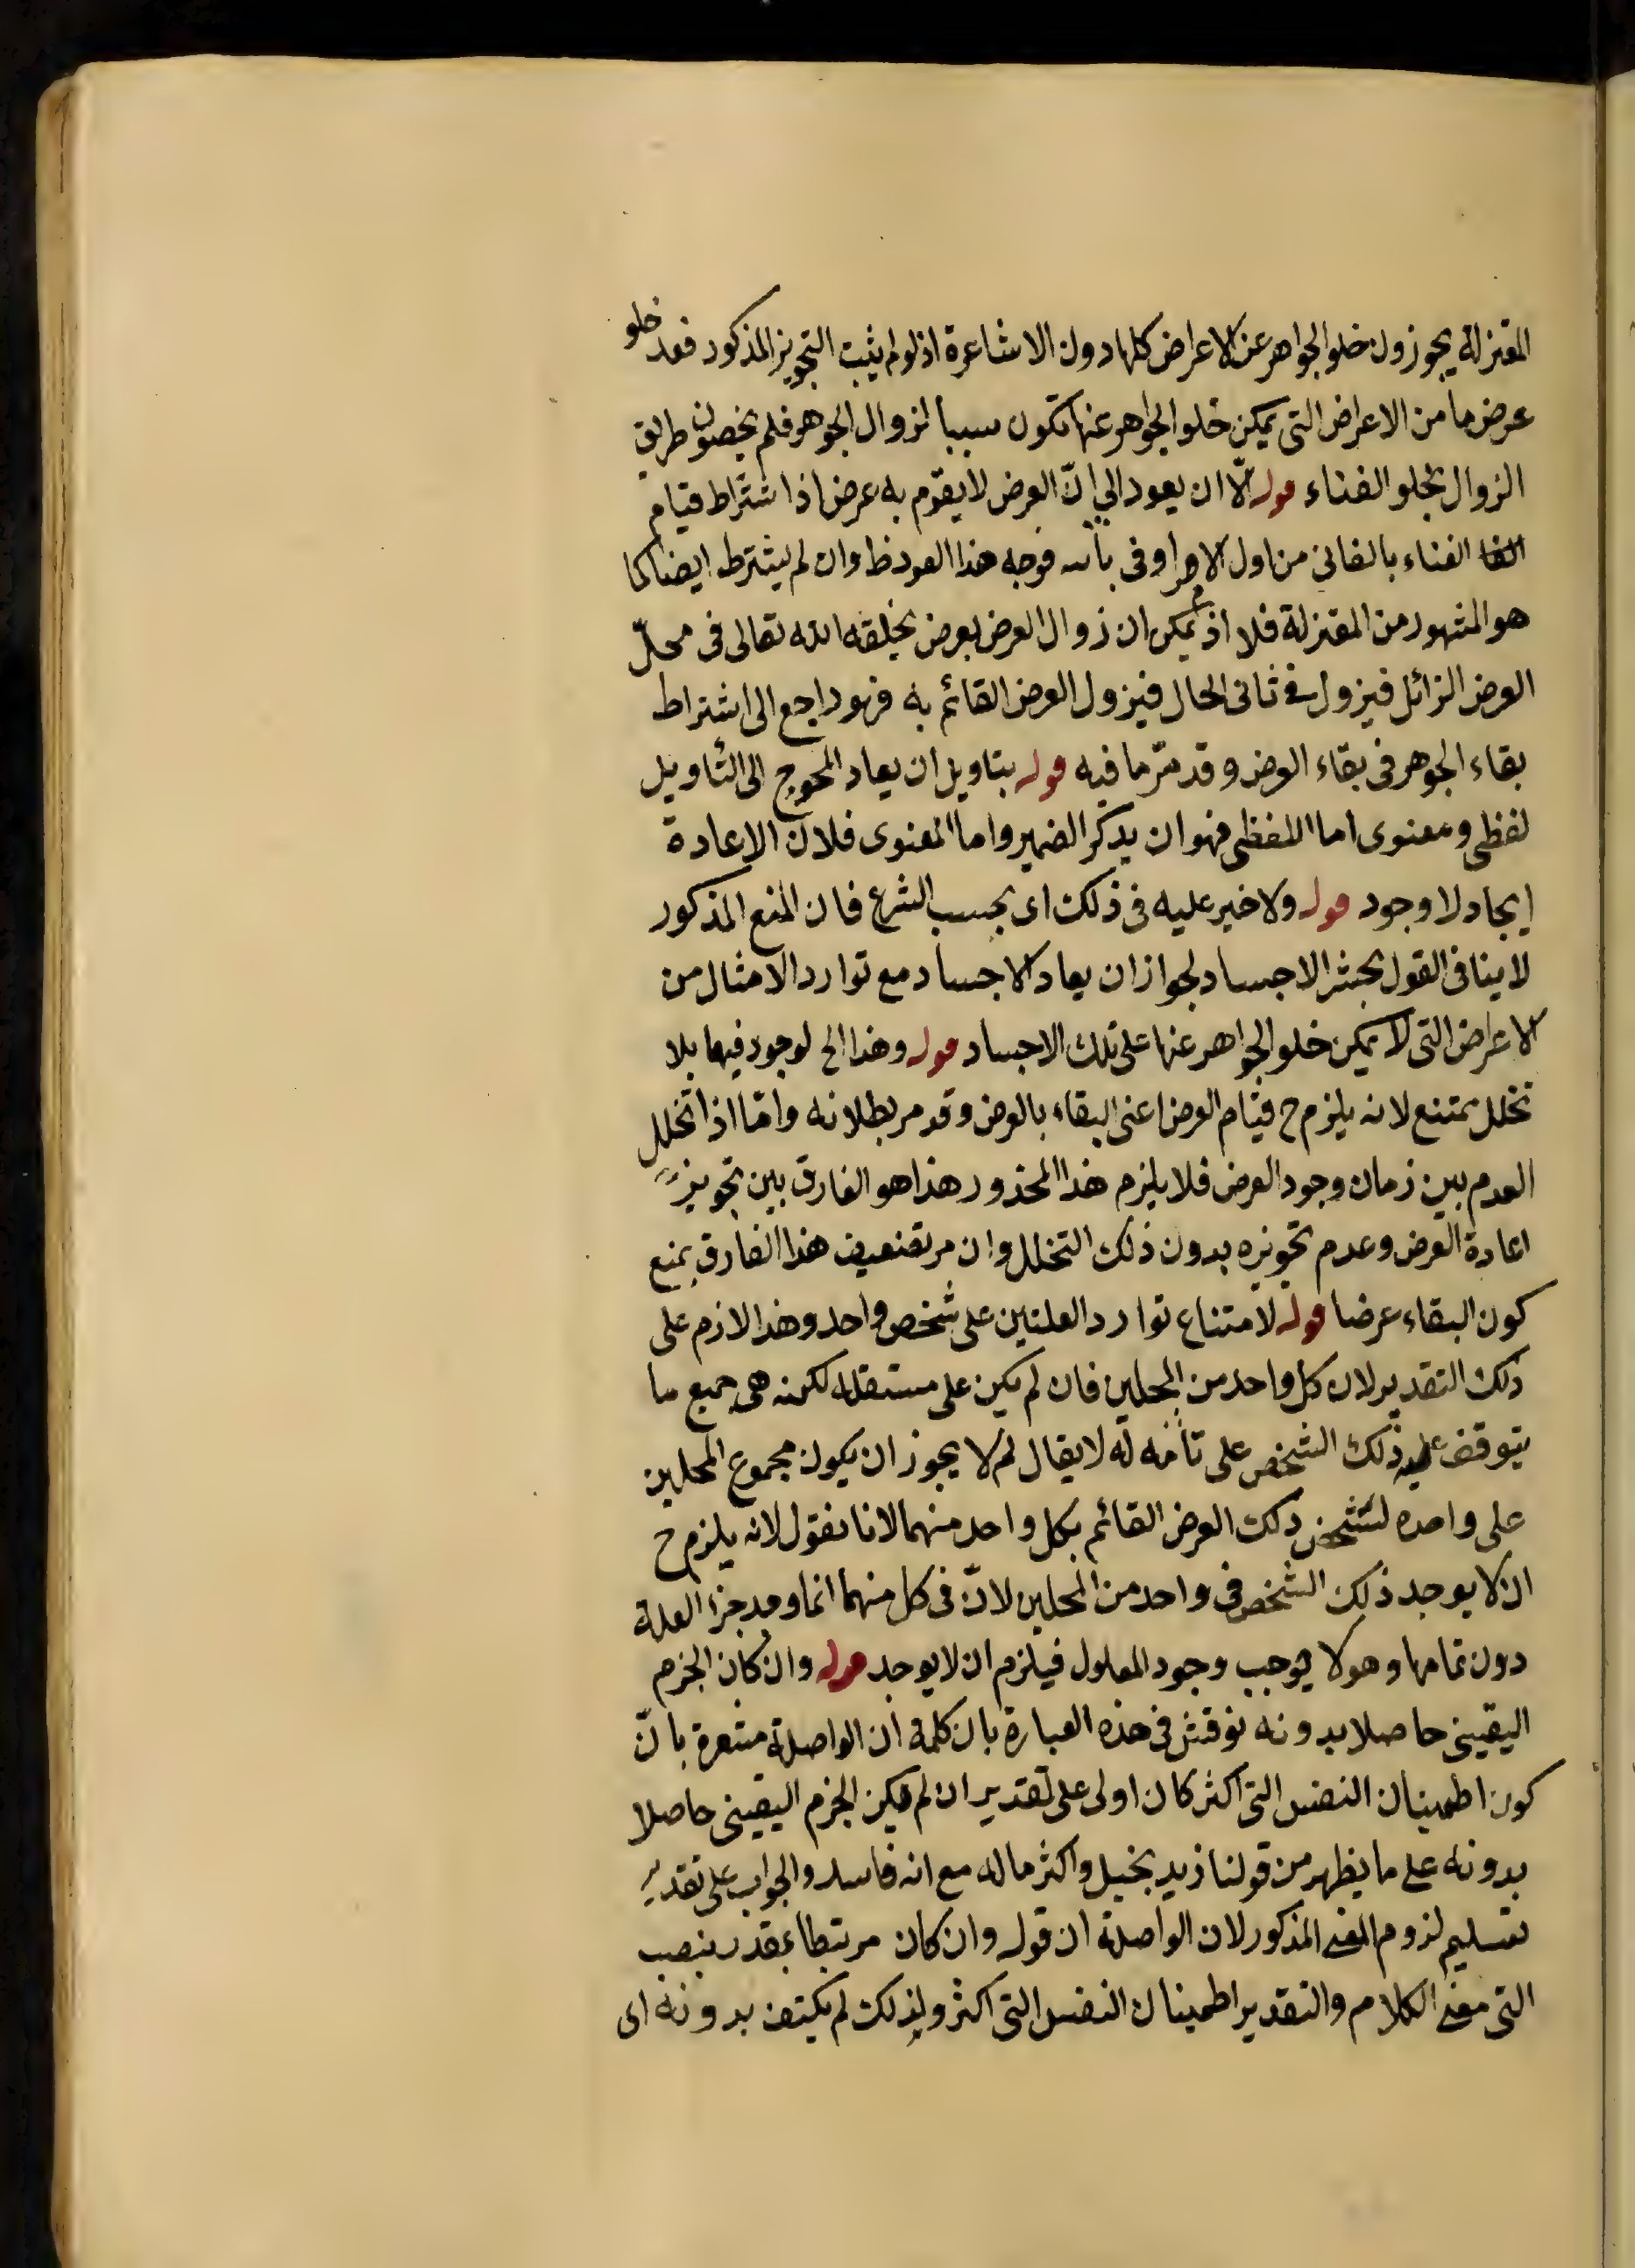 المعتزلة يجوزون خلو الجواهر عن الاعراض كلها دون الاشاعرة اذ لو لم يثبت التجويز المذكور فعند خلو
عرض ما من الاعراض التى يمكن خلو الجواهر عنها تكون سببا لزوال الجوهر فلم يخصون طريق
الزوال بخلو الفناء قوله الّا ان يعود الى انّ العرض لا يقوم به عرض اذ اشتراط قيام
الفناء بالفانى من اول الامر او فى فوجه هذا العود ظ وان لم يشترط ايضا كما
هو المشهور من المعتزلة فلا اذ يمكن ان زوال العرض بعرض يخلقه الله تعالى فى محلّ
العرض الزائل فيزول فى ثانى الحال فيزول العرض القائم به فهو راجع الى اشتراط
بقاء الجوهر فى بقاء العرض وقد مرّ ما فيه قوله بتاويل ان يعاد المحوج الى التأويل
لفظى ومعنوى اما اللفظى فهو ان يذكّر الضمير واما المعنوى فلان الاعادة
إيجاد لا وجود قوله ولا خير عليه فى ذلك اى بحسب الشرع فان المنع المذكور
لا ينافى القول بحشر الاجساد لجواز ان يعاد الاجساد مع توارد الامثال من
الاعراض التى لا يمكن خلو الجواهر عنها على تلك الاجساد قوله وهذا الخ لوجود فيهما بلا
تخلل يمتنع لانه يلزم ح قيام العرض اعنى البقاء بالعرض وقد مر بطلانه وامّا اذا تخلل
العدم بين زمان وجود العرض فلا يلزم هذا المحذور هذا هو الفارق بين تجويز
اعادة العرض وعدم تجويزه بدون ذلك التخلل وان مر تضعيف هذا الفارق بمنع
كون البقاء عرضا قوله لامتناع توارد العلتين على شخص واحد وهذا لازم على
ذلك التقدير لان كل واحد من المحلين فان لم يكن على مستقله لكنه هى جميع ما
يتوقف عليه ذلك الشخص على تامه له لا يقال لم لا يجوز ان يكون مجموع المحلين
على واحده لتشخص ذلك العرض القائم بكل واحد منهما لانا نقول لانه يلزم ح
ان لا يوجد ذلك الشخص فى واحد من المحلين لانّ فى كل منهما انما وجد جزء العلة
دون تمامها وهو لا يوجب وجود المعلول فيلزم ان لا يوجد قوله وان كان الجزم
اليقينى حاصلا بدونه نوقش فى هذه العبارة بان كلمة ان الواصلة مشعرة بانّ
كون اطمينان النفس التى اكثر كان اولى على تقدير ان لم يكن الجزم اليقينى حاصلا
بدونه على ما يظهر من قولنا زيد بخيل واكثر ماله مع انه فاسد والجواب على تقدير
تسليم لزوم المعنى المذكور لان الواصلة ان قوله وان كان مرتبطا بقدر بنصب
التى معنى الكلام والتقدير اطمينان النفس التى اكثر ولذلك لم يكتف بدونه اى